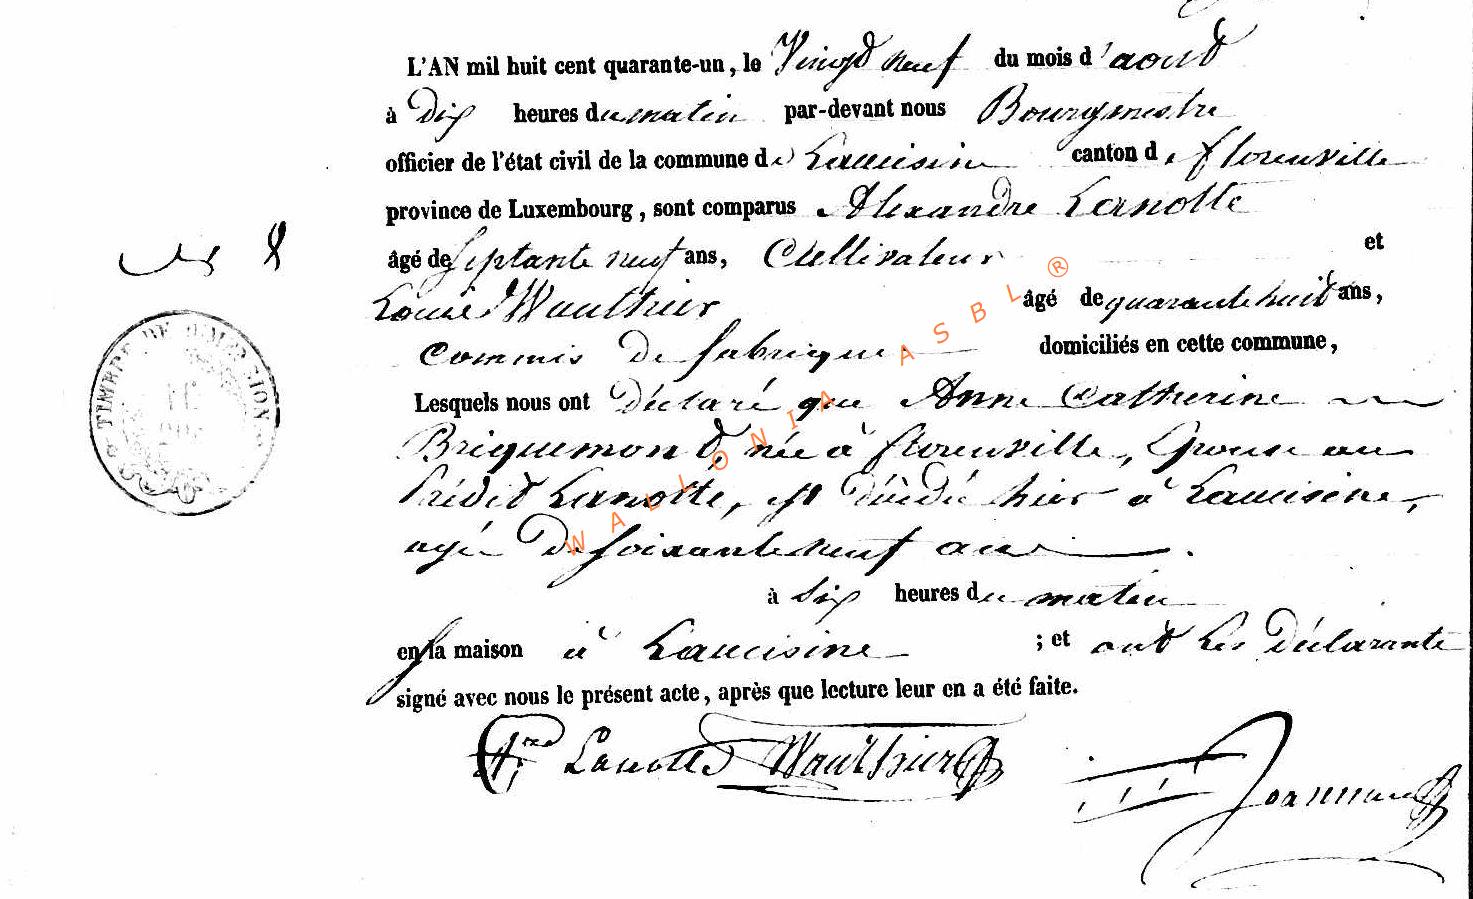 L'AN mil huit cent quarante-un, le Vingt neuf du mois d'aout
à Dix heures du matin par-devant nous Bourgmestre
officier de l'état civil de la commune de Lacuisine canton de florenville
province de Luxembourg, sont comparus Alexandre Lanotte
âgé de Septante neuf ans, Cultivateur et
N° 8
Louis Wauthier âgé de quarante huit ans,
Commis de fabrique domiciliés en cette commune,
Lesquels nous ont Déclaré que Anne Catherine
Briquemont, née à florenville, Epouse au
Prédit Lanotte, est Décédé hier à Lacuisine,
agé De soixante neuf ans.
à Six heures du matin
en sa maison à Lacuisine ; et ont Les Déclarants
signé avec nous le présent acte, après que lecture leur en a été faite.
Lanotte Wauthier
TIMBRE DE DIMENSION
WALLONIA ASBL ®